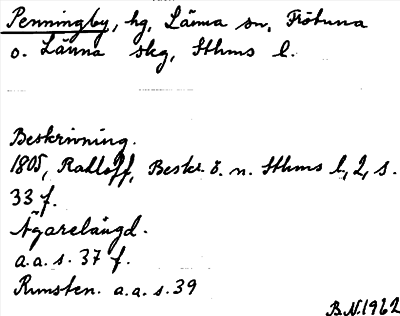 Penningby, hg, Länna sn, Frötuna
o. Länna skg, Sthms l.
Beskrivning.
1805, Radloff, Beskr. ö. n. Sthms l, 2, s.
33 f.
Ägarelängd.
a.a. s. 37 f.
Runsten. a.a. s. 39
B.N. 1962